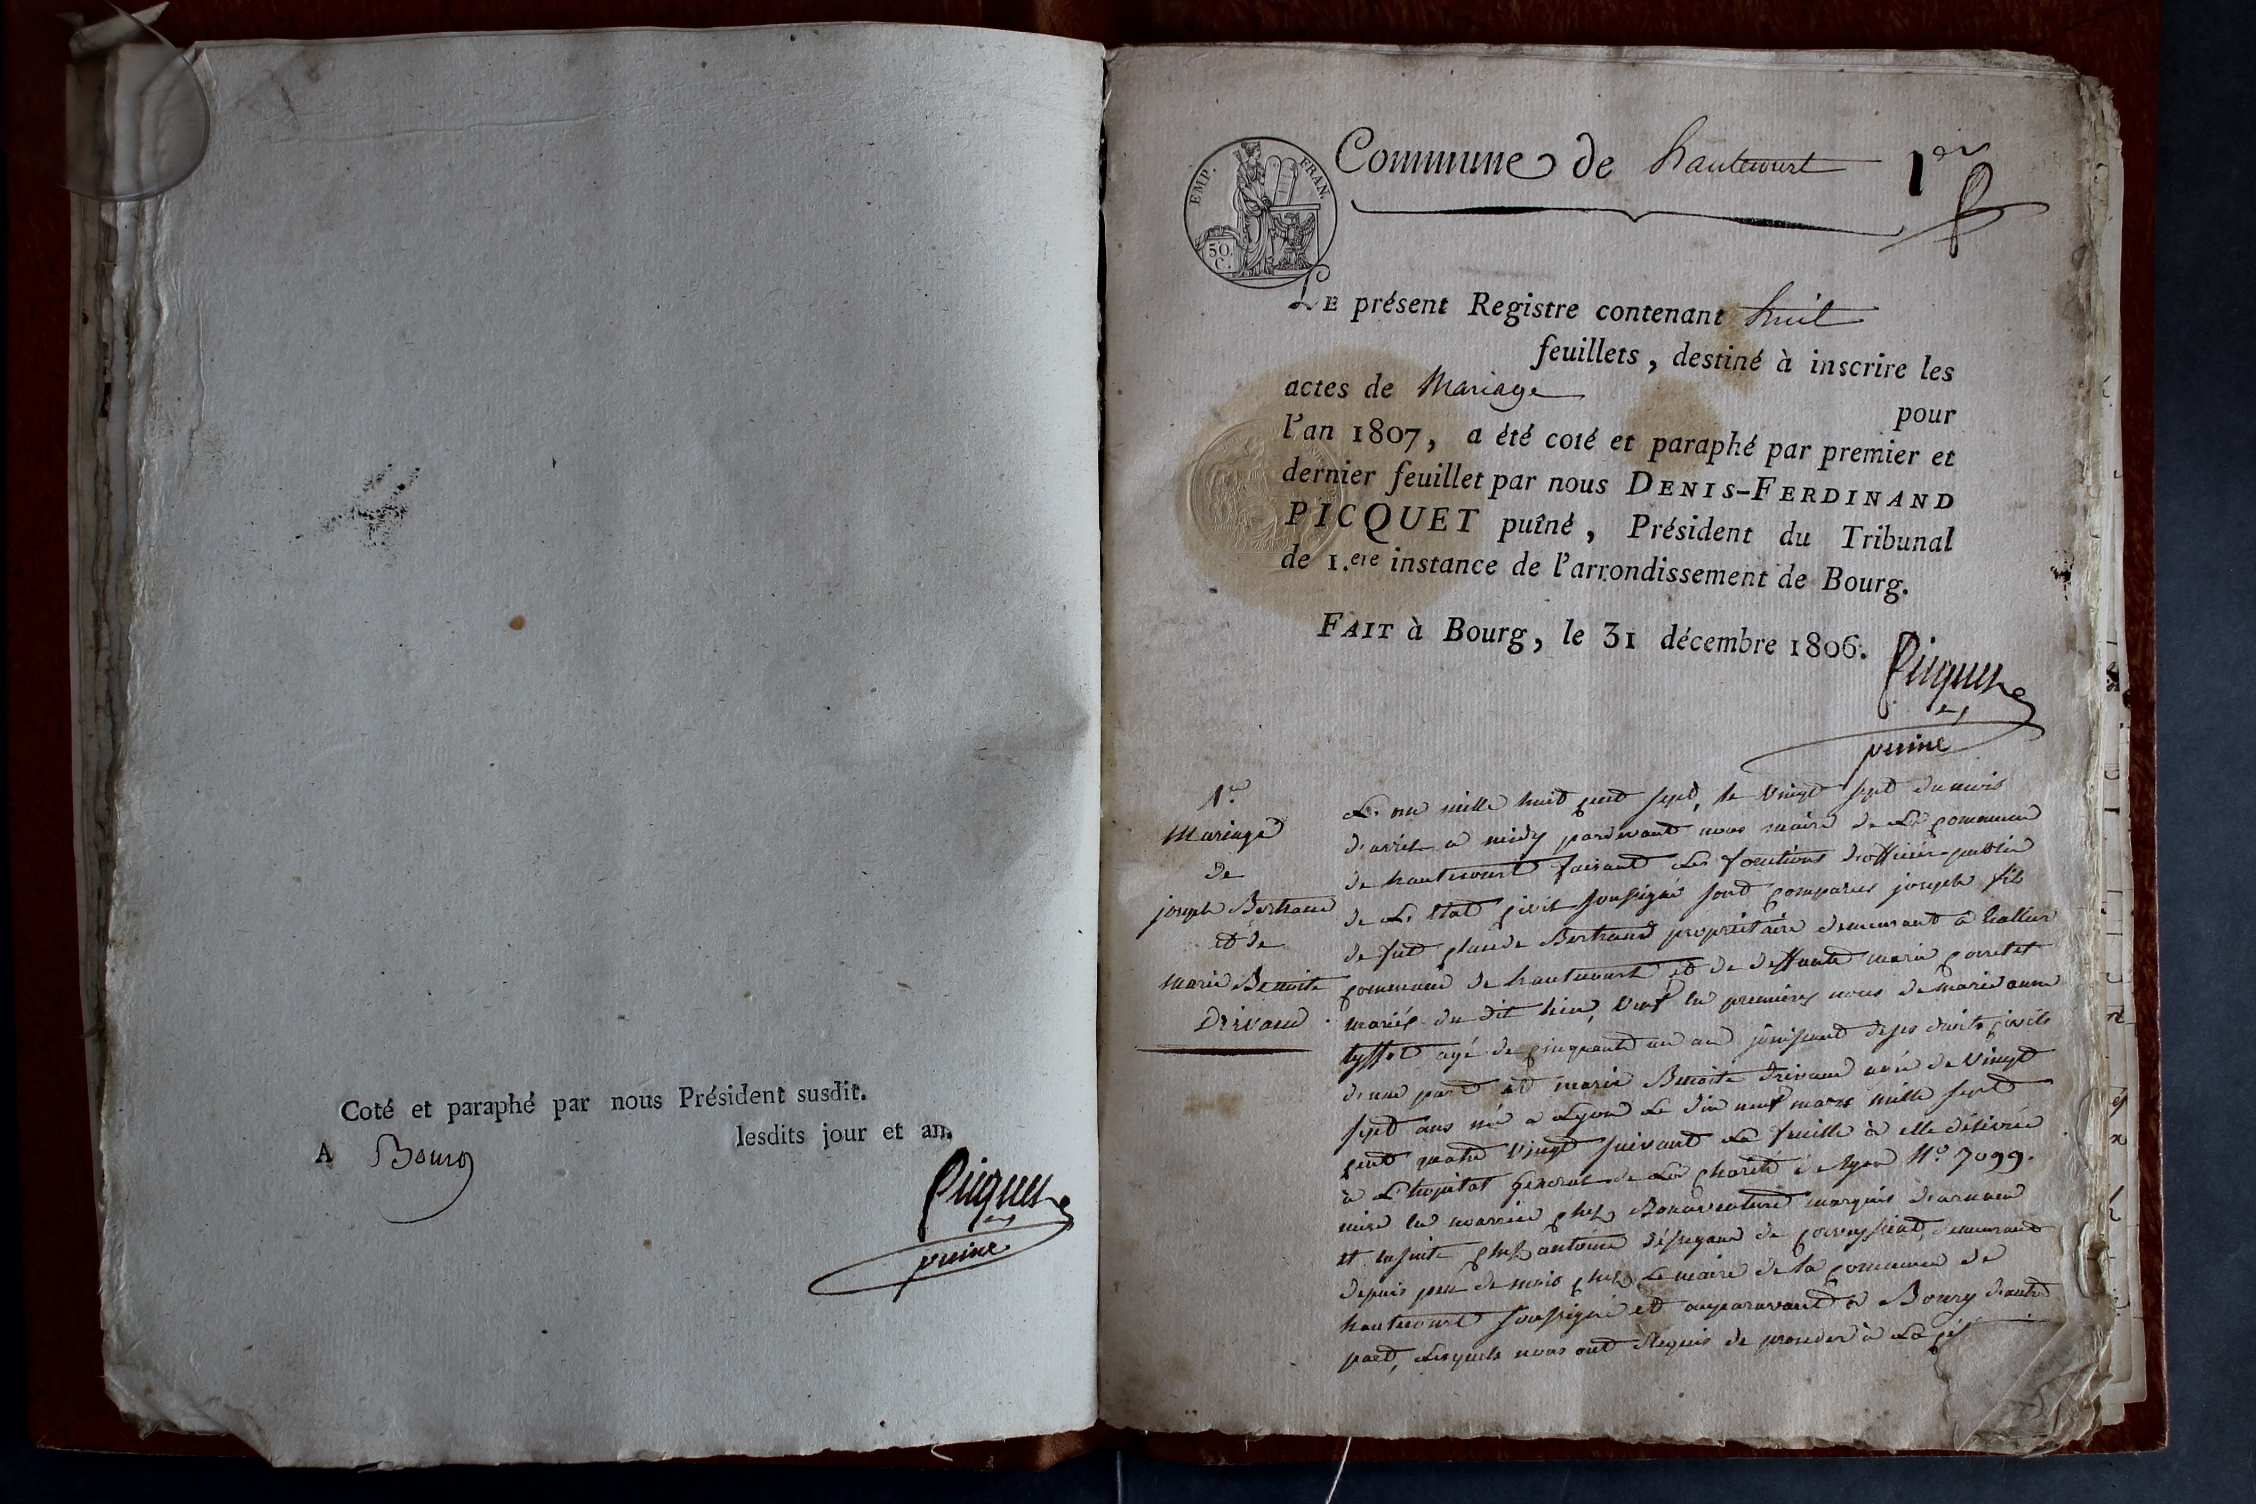 Coté et paraphé par nous Président susdit.
A Bourg lesdits jour et an.
Picquet
puine
EMP. FRAN.
50.
C.
Commune de hautecourt 1er
LE présent Registre contenant huit
feuillets, destiné à inscrire les
actes de Mariage
pour
l'an 1807, a été coté et paraphé par premier et
dernier feuillet par nous DENIS-FERDINAND
PICQUET puîné, Président du Tribunal
de 1.ere instance de l'arrondissement de Bourg.
FAIT à Bourg, le 31 décembre 1806.
Picquet
puine
Mariage
de
joseph Bertrand
et de
marie Benoite
Drivaud
L'an mille huit cent sept, le vingt sept du mois
d'avril a midy pardevant nous maire de La commune
de hautecourt faisant Les fonctions d'officier public
de L'état civil soussigné sont comparus joseph fils
de fut claude Bertrand propriétaire demeurant à
commune de hautecourt et de deffunte marie
mariés du dit lieu, veuf en premières noces de marie anne
tissot agé de cinquante un an jouissant de ses droits civils
d'une part et marie Benoite Drivaud agée de vingt
sept ans née a Lyon Le dix neuf mars mille sept
cent quatre vingt suivant La feuille à elle délivrée
à L'hopital General de La charité de Lyon N° 7099.
mise en nourrice chez Bonaventure marquis
et ensuite chez antoine de demeurant
depuis peu de mois chez Le maire de la commune de
hautecourt soussigné et auparavant à Bourg d'autre
part, Lesquels nous ont Requis de proceder à La cél